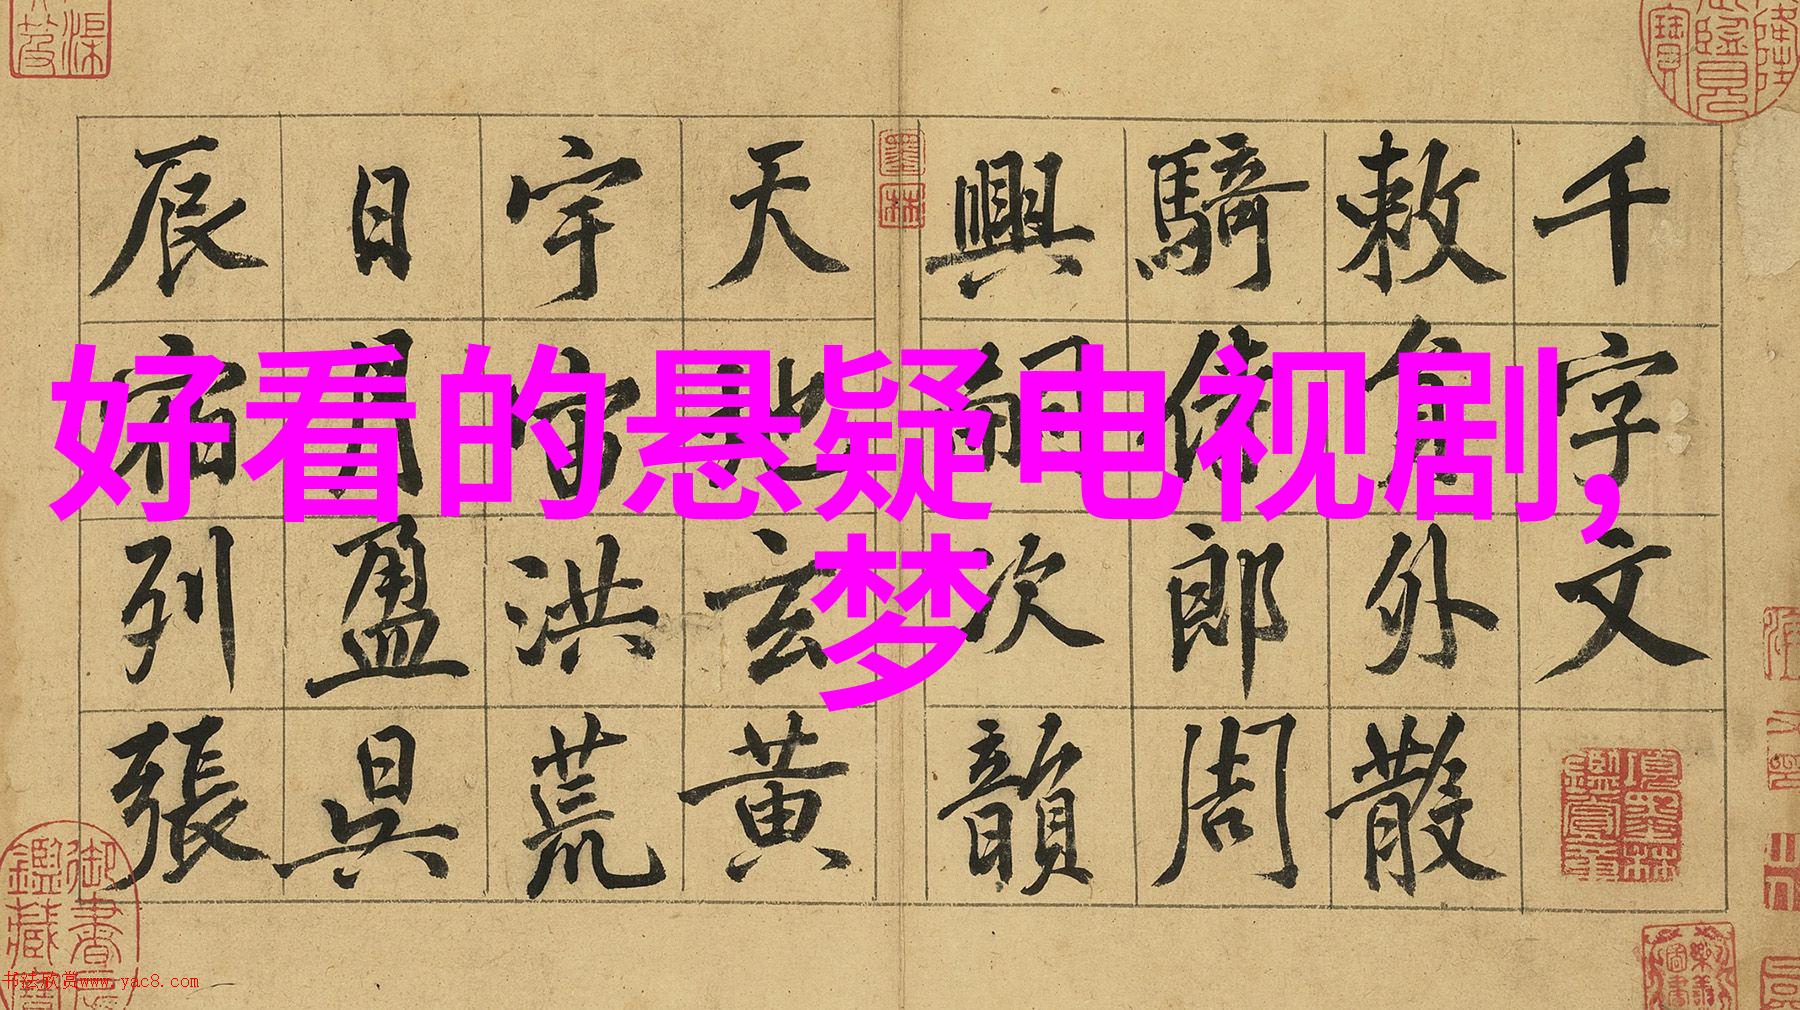 好看的悬疑电视剧,
梦
千字文
敕員外散
騎侍郎周
興嗣次韻
天地玄黃
宇宙洪荒
日月盈昃
辰宿列張
書法欣赏www.yac8.com